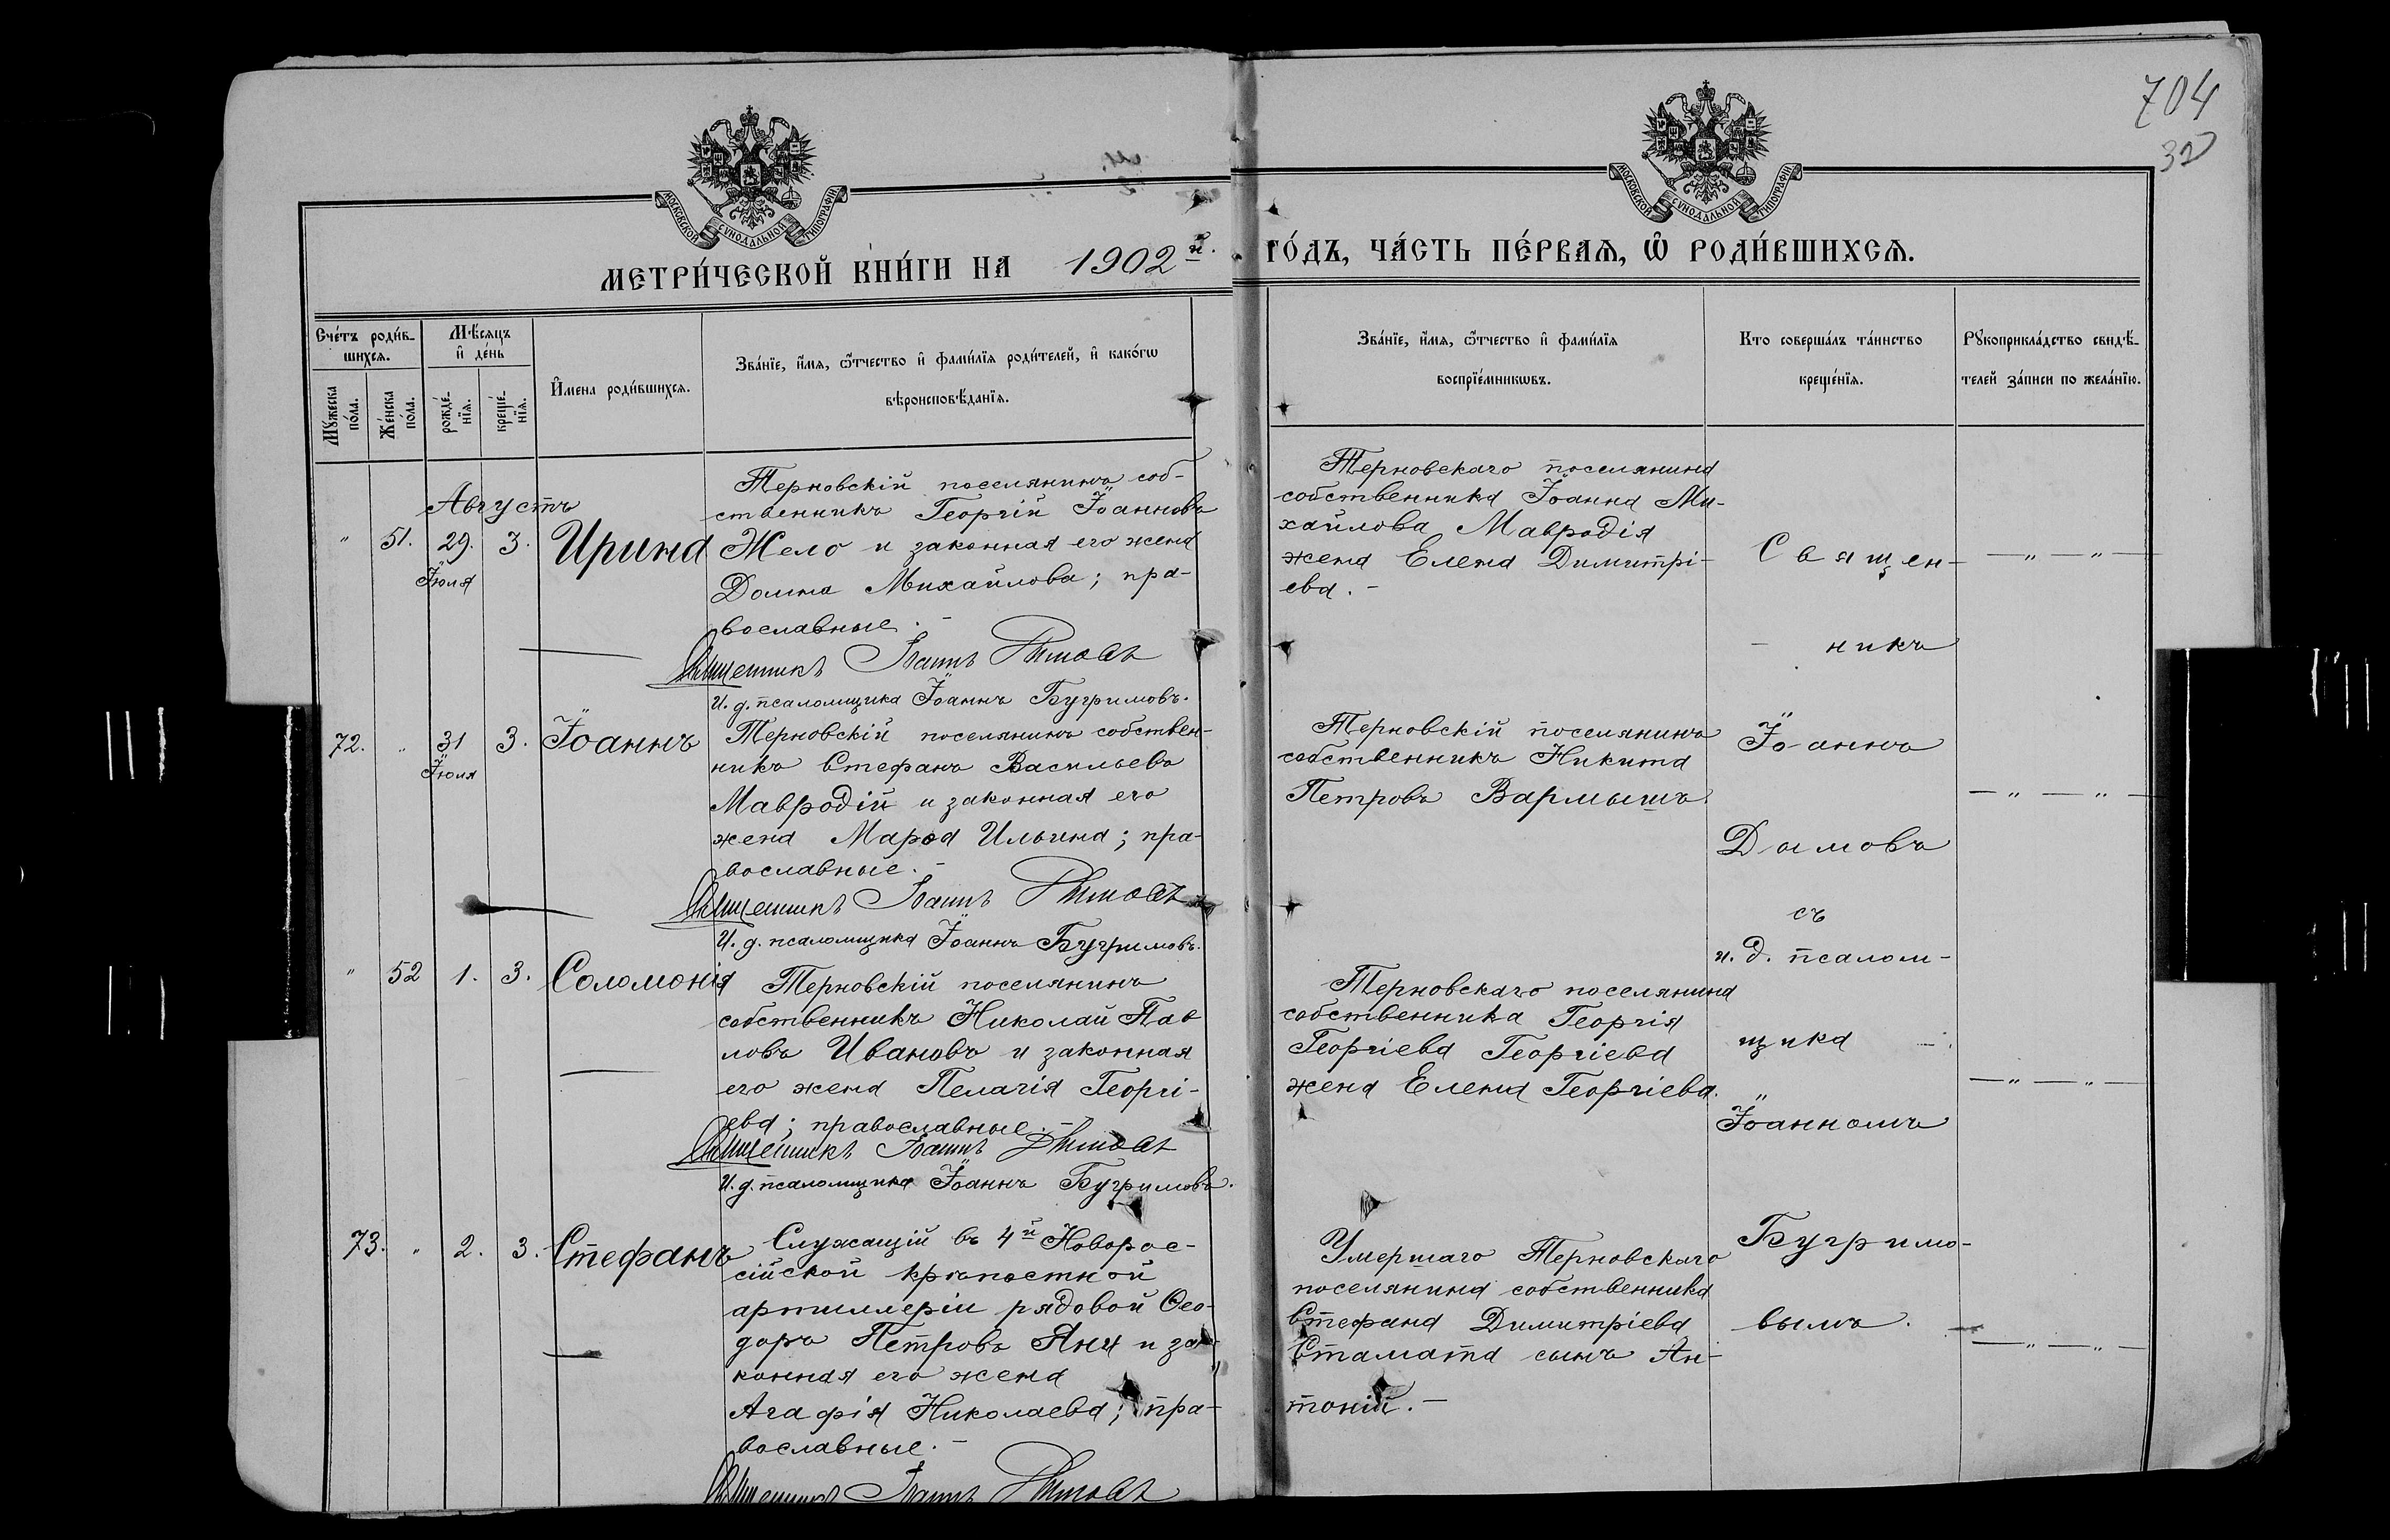 704
32
МОСКОВСКОЙ СѴНОДАЛЬНОЙ ТИПОГРАФІИ
МОСКОВСКОЙ СѴНОДАЛЬНОЙ ТИПОГРАФІИ
МЕТРИ́ЧЕСКОЙ КНИ́ГИ НА 1902й. ГО́ДЪ, ЧА́СТЬ ПЕ́РВАѦ, Ѽ РОДИ́ВШИХСѦ.
Сче́тъ роди́в-
шихсѧ.
Мꙋ́жеска по́ла.
Же́нска по́ла.
Мѣ́сѧцъ
и҆ де́нь
рожде́-нїѧ.
креще́-нїѧ.
И҆мена роди́вшихсѧ.
Зва́нїе, и҆́мѧ, ѻ҆́тчество и҆ фами́лїѧ роди́телей, и҆ како́гѡ
вѣроисповѣ́данїѧ.
Зва́нїе, и҆́мѧ, ѻ҆́тчество и҆ фами́лїѧ
воспрїе́мникѡвъ.
Кто соверша́лъ та́инство
креще́нїѧ.
Рꙋкоприкла́дство свидѣ́-
телей за́писи по жела́нїю.
Августъ
" 51. 29. Іюля 3. Ирина
Терновскій поселянинъ соб-
ственникъ Георгій Іоанновъ
Жело и законная его жена
Домна Михайлова; пра-
вославные.-
Священникъ Іоаннъ Дымовъ
И. д. псаломщика Іоаннъ Бугримовъ.
Терновскаго поселянина
собственника Іоанна Ми-
хайлова Мавродія
жена Елена Димитрі-
ева.-
— " — " —
72. " 31 Іюля 3. Іоаннъ
Терновскій поселянинъ собствен-
никъ Стефанъ Васильевъ
Мавродій и законная его
жена Мароа Ильина; пра-
вославные.-
Священникъ Іоаннъ Дымовъ
И. д. псаломщика Іоаннъ Бугримовъ.
Терновскій поселянинъ
собственникъ Никита
Петровъ Вармышъ
— " — " —
" 52 1. 3. Соломонія
Терновскій поселянинъ
собственникъ Николай Пав
ловъ Ивановъ и законная
его жена Пелагія Георгі-
ева; православные.-
Священникъ Іоаннъ Дымовъ
И. д. псаломщика Іоаннъ Бугримовъ.
Терновскаго поселянина
собственника Георгія
Георгіева Георгіева
жена Елена Георгіева.
— " — " —
73. " 2. 3. Стефанъ
Служащій въ 4й Новорос-
сійской крѣпостной
артиллеріи рядовой Ѳео-
доръ Петровъ Яни и за-
конная его жена
Агафія Николаева; пра-
вославные.-
Священникъ Іоаннъ Дымовъ
Умершаго Терновскаго
поселянина собственника
Стефана Димитріева
Стамата сынъ Ан-
тоній.-
— " — " —
Священ-
никъ
Іоаннъ
Дымовъ
съ
и. д. псалом-
щика
Іоанномъ
Бугримо-
вымъ.